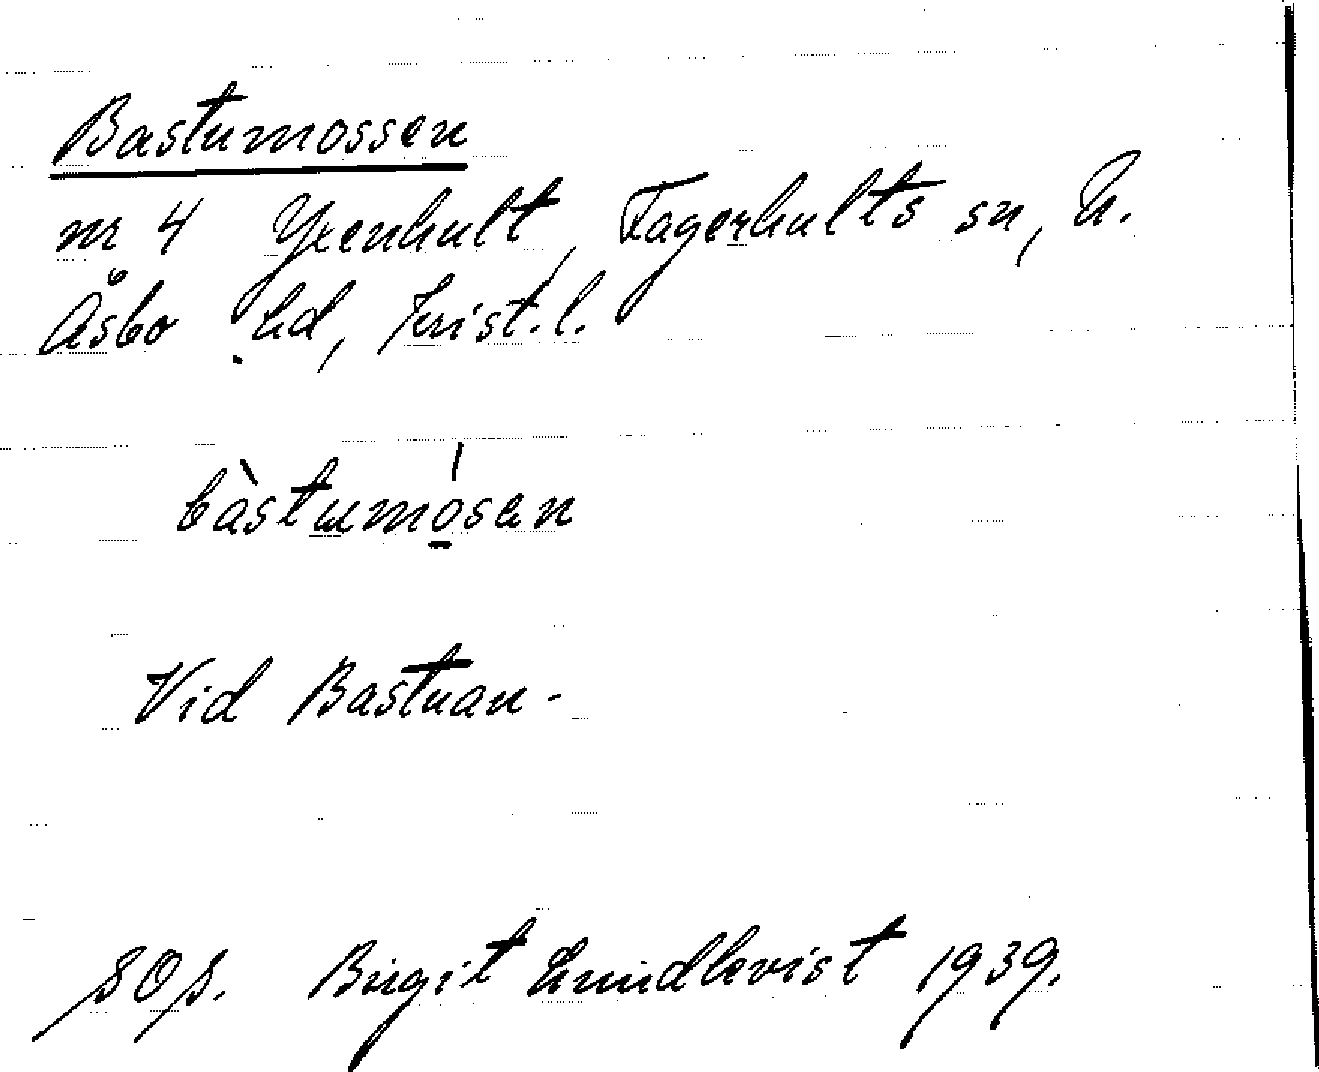 Bastumossen
nr 4 Yxenhult, Fagerhults sn, N.
Åsbo hd, Krist. l.
bàstumósen
Vid Bastuan.
SOs. Birgit Lundkvist 1939.